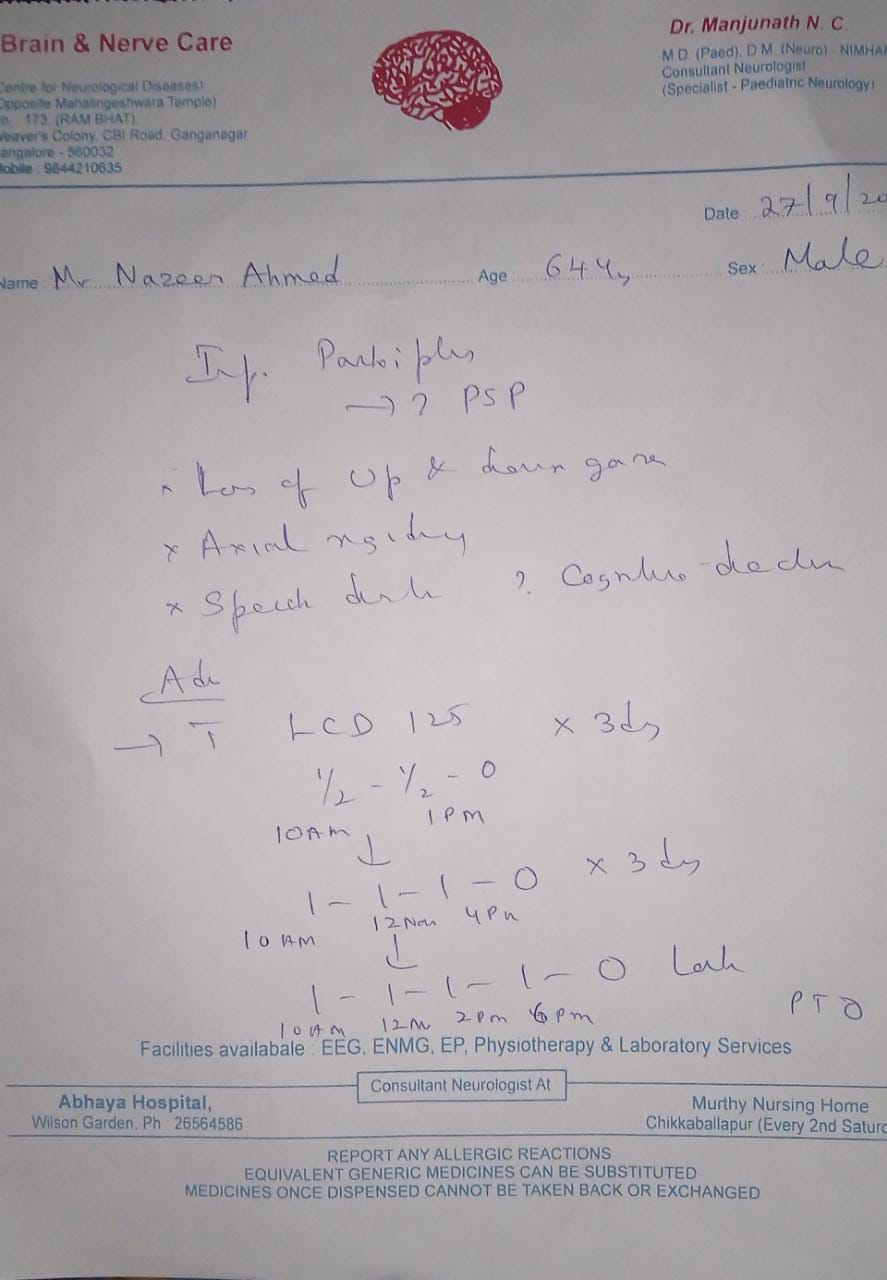 Brain & Nerve Care
Centre for Neurological Diseases)
Opposite Mahalingeshwara Temple)
173, (RAM BHAT)
eaver's Colony, CBI Road, Ganganagar
angalore - 560032
obile : 9844210635
Dr. Manjunath N. C.
M.D. (Paed), D.M. (Neuro) - NIMHAN
Consultant Neurologist
(Specialist - Paediatric Neurology)
Date 27/9/20
Name Mr Nazeer Ahmed Age 64 Ys Sex : Male
Imp.
→ ? PSP
x Loss of Up & down gaze
x Axial rigidity
x Speech ? Cognitive decline
Adv
→ T LCD 125 x 3 dys
1/2 - 1/2 - 0
10AM 1PM
↓
1 - 1 - 1 - 0 x 3 dys
10 AM 12 Noon 4 Pm
↓
1 - 1 - 1 - 1 - 0
10 AM 12 N 2 pm 6 pm
PTO
Facilities availabale : EEG, ENMG, EP, Physiotherapy & Laboratory Services
Consultant Neurologist At
Abhaya Hospital,
Wilson Garden, Ph 26564586
Murthy Nursing Home
Chikkaballapur (Every 2nd Saturd
REPORT ANY ALLERGIC REACTIONS
EQUIVALENT GENERIC MEDICINES CAN BE SUBSTITUTED
MEDICINES ONCE DISPENSED CANNOT BE TAKEN BACK OR EXCHANGED